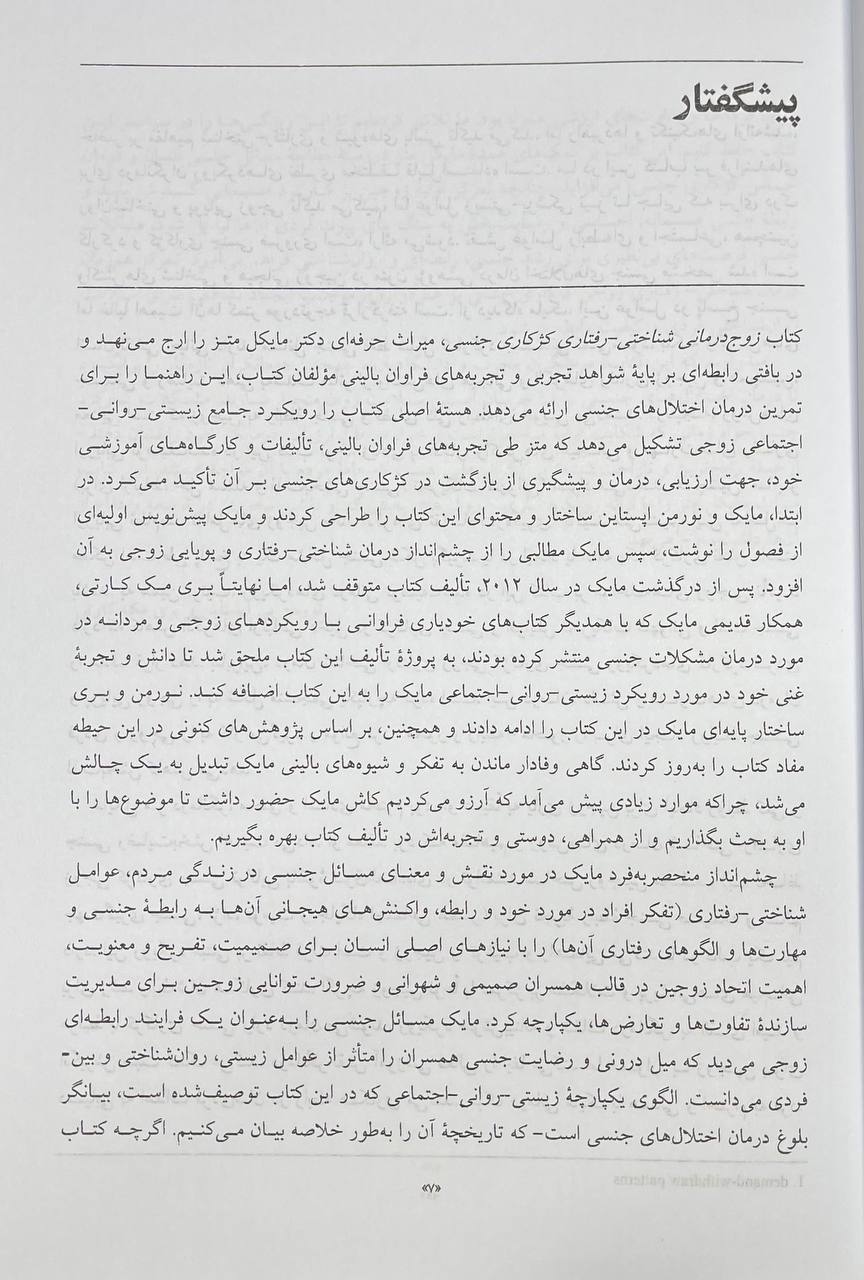 پیشگفتار
کتاب زوج‌درمانی شناختی-رفتاری کژکاری جنسی، میراث حرفه‌ای دکتر مایکل متز را ارج می‌نهد و
در بافتی رابطه‌ای بر پایهٔ شواهد تجربی و تجربه‌های فراوان بالینی مؤلفان کتاب، این راهنما را برای
تمرین درمان اختلال‌های جنسی ارائه می‌دهد. هستهٔ اصلی کتاب را رویکرد جامع زیستی-روانی-
اجتماعی زوجی تشکیل می‌دهد که متز طی تجربه‌های فراوان بالینی، تألیفات و کارگاه‌های آموزشی
خود، جهت ارزیابی، درمان و پیشگیری از بازگشت در کژکاری‌های جنسی بر آن تأکید می‌کرد. در
ابتدا، مایک و نورمن اپستاین ساختار و محتوای این کتاب را طراحی کردند و مایک پیش‌نویس اولیه‌ای
از فصول را نوشت، سپس مایک مطالبی را از چشم‌انداز درمان شناختی-رفتاری و پویایی زوجی به آن
افزود. پس از درگذشت مایک در سال ۲۰۱۲، تألیف کتاب متوقف شد، اما نهایتاً بری مک کارتی،
همکار قدیمی مایک که با همدیگر کتاب‌های خودیاری فراوانی با رویکردهای زوجی و مردانه در
مورد درمان مشکلات جنسی منتشر کرده بودند، به پروژهٔ تألیف این کتاب ملحق شد تا دانش و تجربهٔ
غنی خود در مورد رویکرد زیستی-روانی-اجتماعی مایک را به این کتاب اضافه کند. نورمن و بری
ساختار پایه‌ای مایک در این کتاب را ادامه دادند و همچنین، بر اساس پژوهش‌های کنونی در این حیطه
مفاد کتاب را به‌روز کردند. گاهی وفادار ماندن به تفکر و شیوه‌های بالینی مایک تبدیل به یک چالش
می‌شد، چراکه موارد زیادی پیش می‌آمد که آرزو می‌کردیم کاش مایک حضور داشت تا موضوع‌ها را با
او به بحث بگذاریم و از همراهی، دوستی و تجربه‌اش در تألیف کتاب بهره بگیریم.
چشم‌انداز منحصربه‌فرد مایک در مورد نقش و معنای مسائل جنسی در زندگی مردم، عوامل
شناختی-رفتاری (تفکر افراد در مورد خود و رابطه، واکنش‌های هیجانی آن‌ها به رابطهٔ جنسی و
مهارت‌ها و الگوهای رفتاری آن‌ها) را با نیازهای اصلی انسان برای صمیمیت، تفریح و معنویت،
اهمیت اتحاد زوجین در قالب همسران صمیمی و شهوانی و ضرورت توانایی زوجین برای مدیریت
سازندهٔ تفاوت‌ها و تعارض‌ها، یکپارچه کرد. مایک مسائل جنسی را به‌عنوان یک فرایند رابطه‌ای
زوجی می‌دید که میل درونی و رضایت جنسی همسران را متأثر از عوامل زیستی، روان‌شناختی و بین-
فردی می‌دانست. الگوی یکپارچهٔ زیستی-روانی-اجتماعی که در این کتاب توصیف‌شده است، بیانگر
بلوغ درمان اختلال‌های جنسی است- که تاریخچهٔ آن را به‌طور خلاصه بیان می‌کنیم. اگرچه کتاب
«۷»